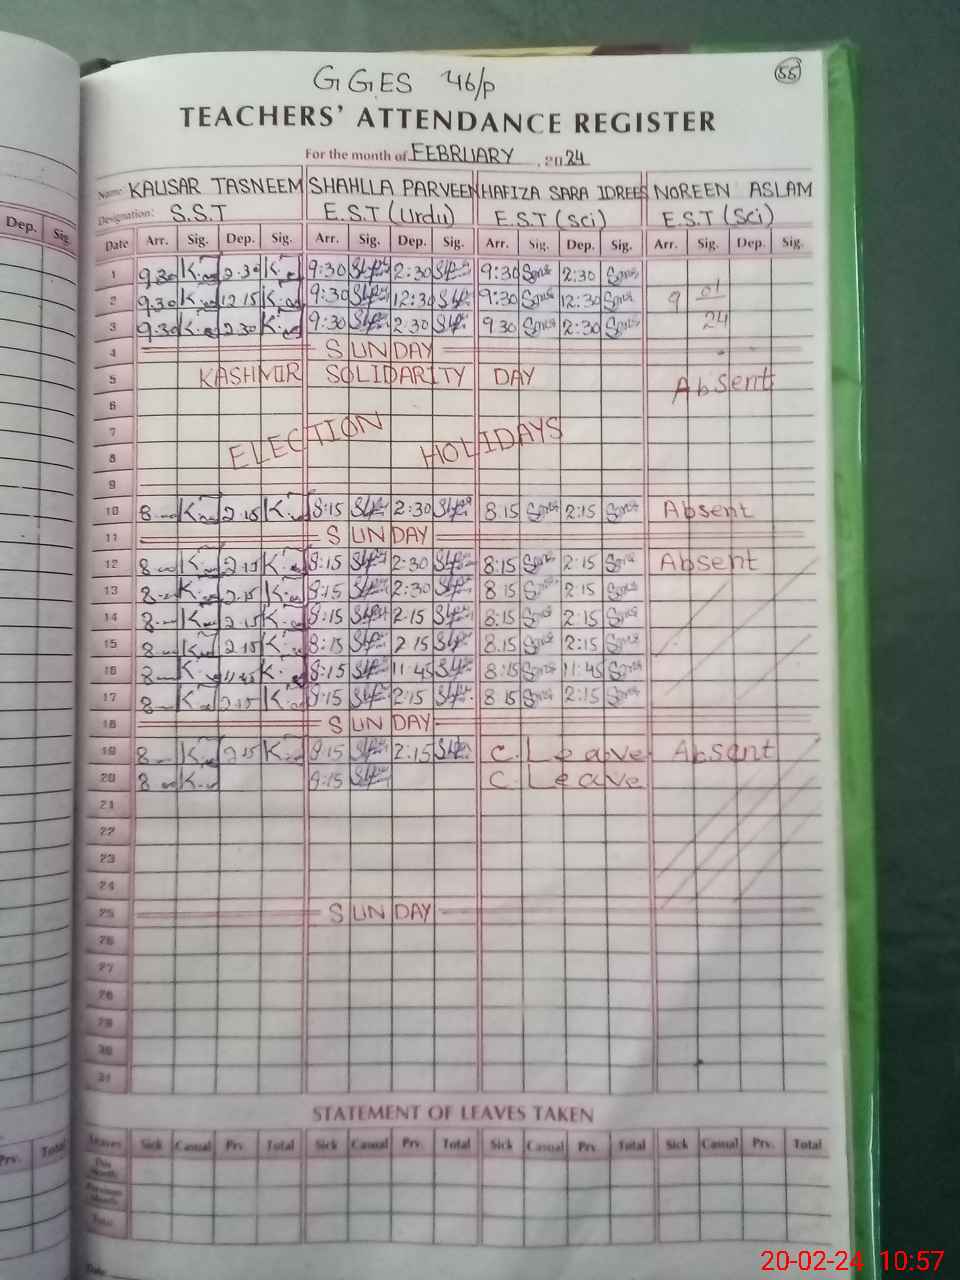 GGES 46/P
55
TEACHERS' ATTENDANCE REGISTER
For the month of FEBRUARY, 2024
Name: KAUSAR TASNEEM SHAHLLA PARVEEN HAFIZA SARA IDREES NOREEN ASLAM
Designation: S.S.T E.S.T (Urdu) E.S.T (Sci) E.S.T (Sci)
Dep. Sig. Date Arr. Sig. Dep. Sig. Arr. Sig. Dep. Sig. Arr. Sig. Dep. Sig. Arr. Sig. Dep. Sig.
1 9.30 2.30 9:30 2:30 9:30 2:30
2 9.30 12.15 9:30 12:30 9:30 12:30 9 01
3 9.30 2.30 9:30 2.30 9 30 2:30 24
4 SUNDAY
5 KASHMIR SOLIDARITY DAY Absent
6
7
8 ELECTION HOLIDAYS
9
10 8 2.15 8:15 2:30 8:15 2:15 Absent
11 SUNDAY
12 8 2.15 8:15 2:30 8:15 2:15 Absent
13 8 2.15 8:15 2:30 8 15 2:15
14 8 2.15 8:15 2.15 8:15 2:15
15 8 2.15 8:15 2 15 8.15 2:15
16 8 11.45 8:15 11:45 8:15 11:45
17 8 2.15 8:15 2:15 8 15 2:15
18 SUNDAY
19 8 2.15 8:15 2:15 C. Leave Absent
20 8 8:15 C. Leave
21
22
23
24
25 SUNDAY
26
27
28
29
30
31
STATEMENT OF LEAVES TAKEN
Prv. Total Leaves Sick Casual Prv. Total Sick Casual Prv. Total Sick Casual Prv. Total Sick Casual Prv. Total
This Month
Previous Month
Total
Date
20-02-24 10:57